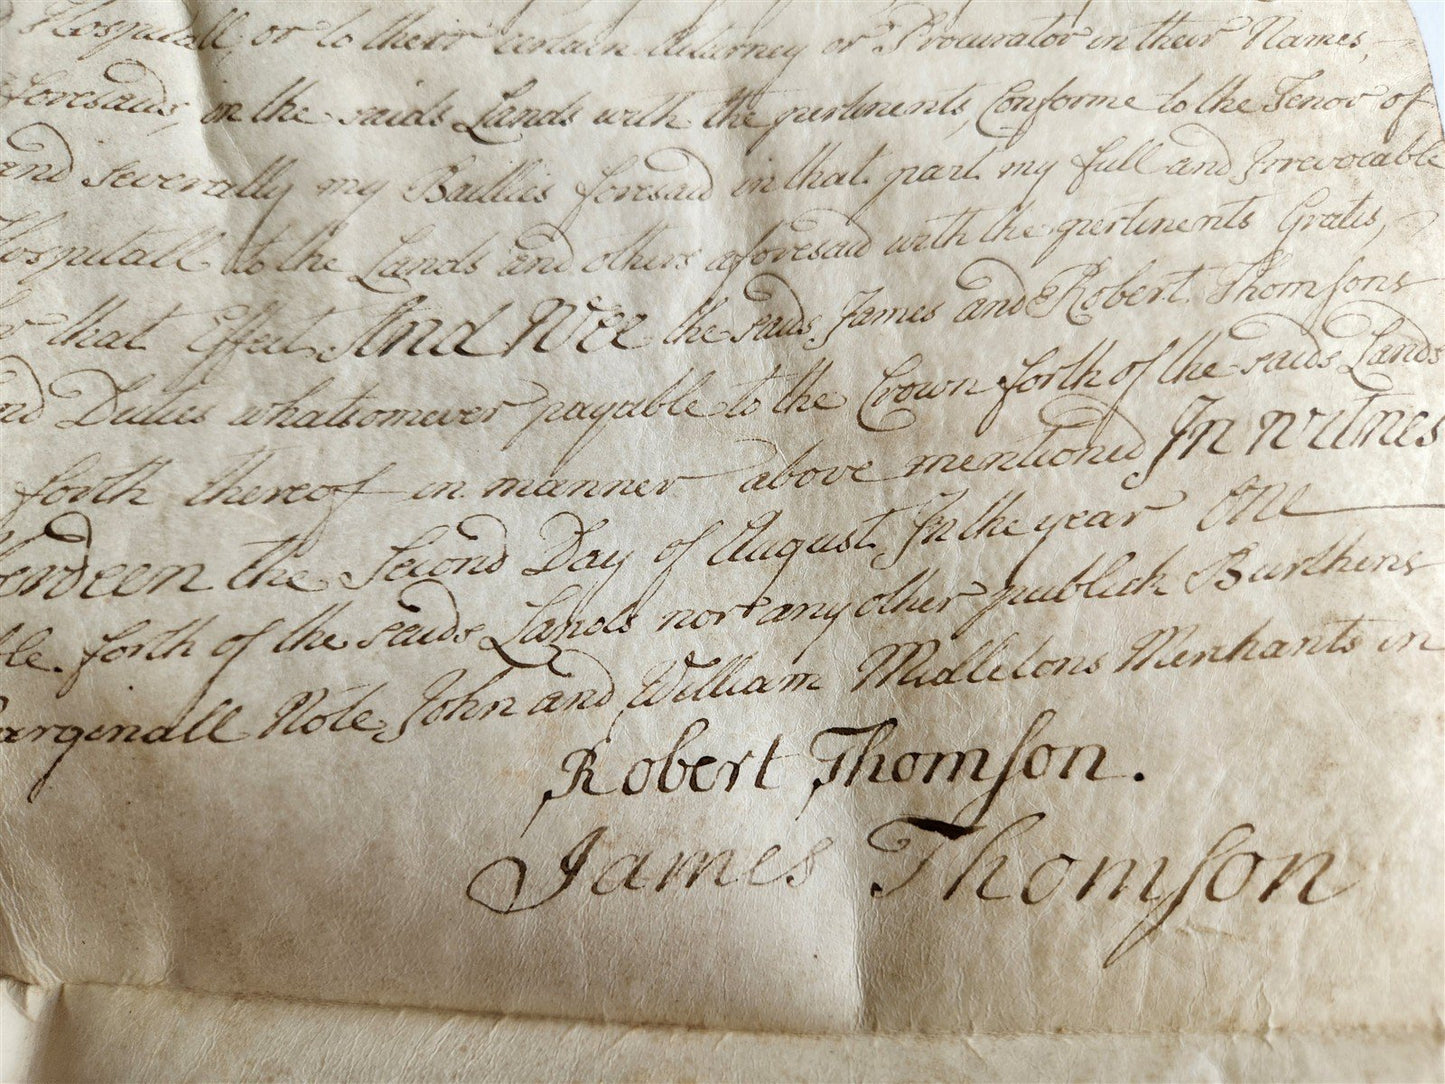 Hospitall, or to their certain Attorney or Procurator in their Names,
foresaids, in the saids Lands with the pertinents, Conforme to the Tenor of
and severally my Baillies foresaid in that part my full and Irrevocable
Hospitall to the Lands and others aforesaid with the pertinents Gratis,
that Effect And Wee the saids James and Robert Thomsons
and Duties whatsomever payable to the Crown forth of the saids Lands
forth thereof in manner above mentioned In Witnes
erdeen the Second Day of August In the year One
forth of the saids Lands nor any other publick Burthens
arginall Note, John and William Midletons Merchants in
Robert Thomson.
James Thomson